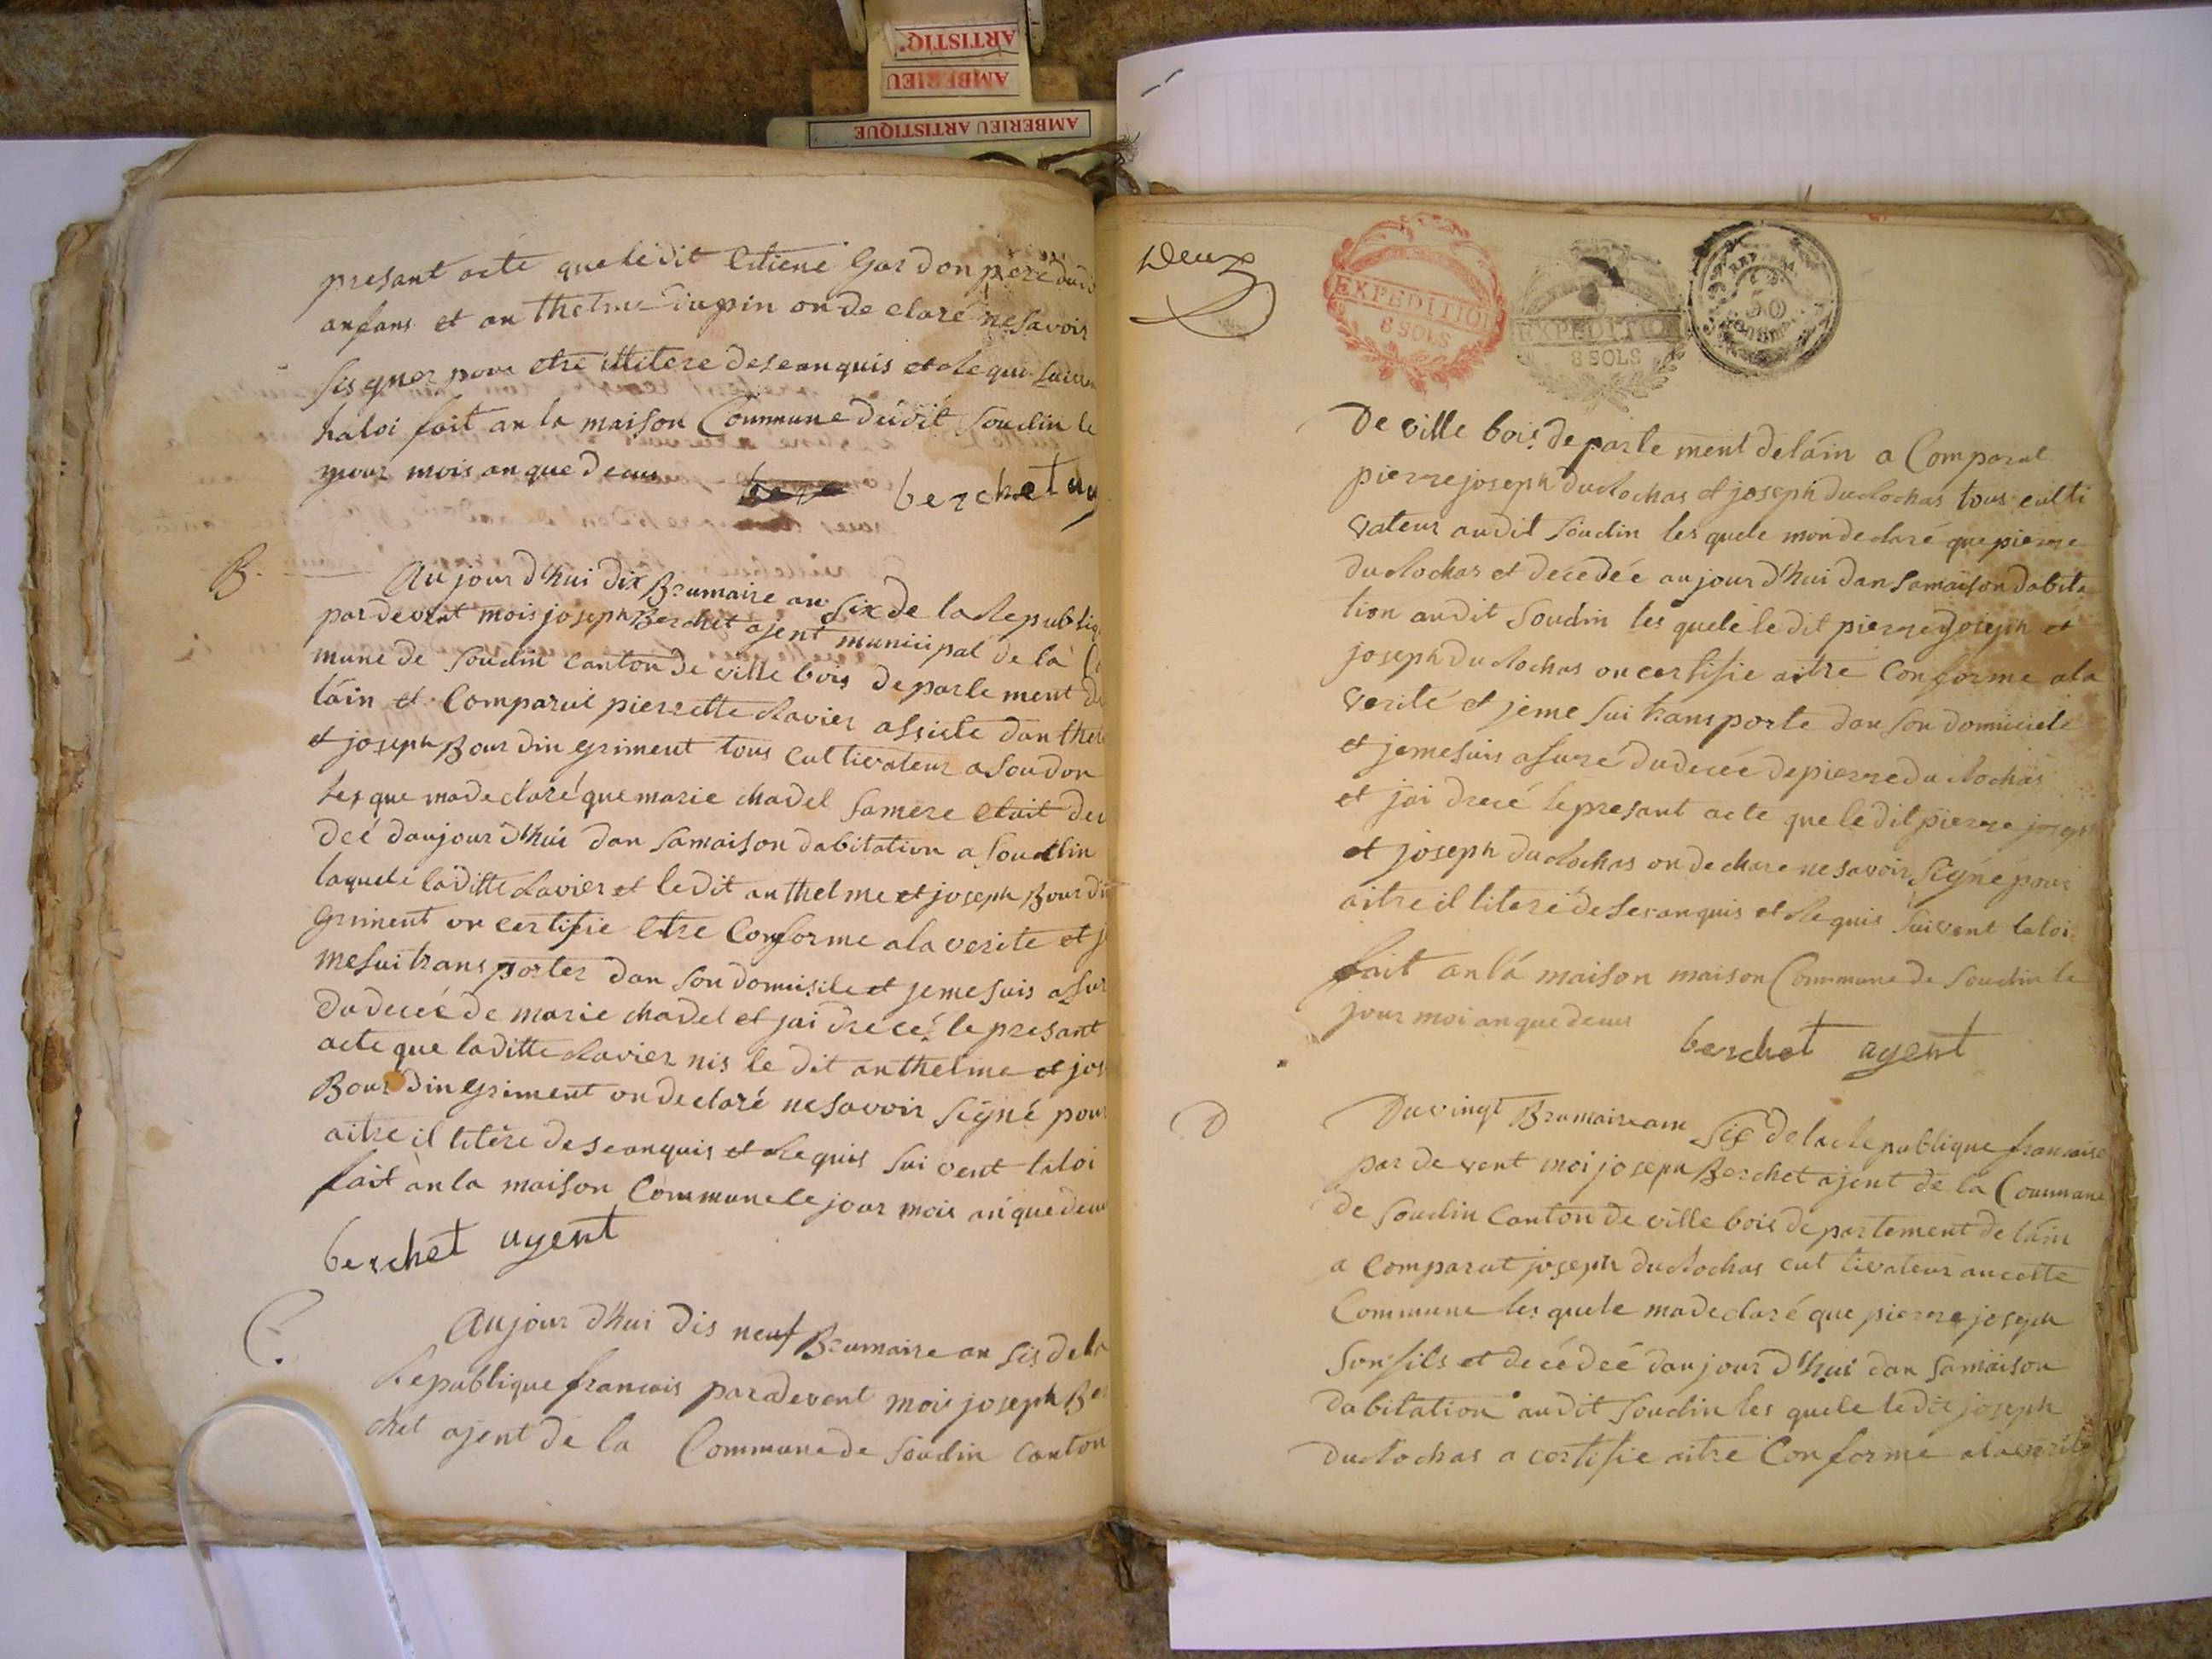 ARTISTIQ
AMBERIEU
AMBERIEU ARTISTIQUE
presant acte que ledit Etiene Gardon pere dudi
anfans et anthelme dupin on de claré ne Savoir
Ses gner pour etre illitere de Seanquis et Requi Suiven
haloi fait an la maison Commune dudit Soudin le
jour mois an que deaus
berchet ag
B.
Aujour d'hui dix Brumaire an Six de la Republiq
par devent mois joseph Berchet ajent municipal de la Co
mune de Soudin canton de ville bois departe ment de
láin et Comparut pierrette Ravier assiste d'anthel
et joseph Bourdin griment tous cultivateur a Soudon
les que ma declaré que marie chadel Samere etait de
deé daujour d'hui dan Samaison dabitation a Soudin
laquele laditte Ravier et ledit anthelme et joseph Bourdi
Griment on certifie Etre Conforme ala verite et j
me Sui trans porter dan Son domisile et jeme Suis asur
du decée de marie chadel et jai drecé le presant
acte que laditte Ravier nis le dit anthelme et jos
Bourdin griment on declaré ne Savoir Signé pour
aitre il litere de Seanquis et Requis Sui vent la loi
fait àn la maison Commune le jour mois an que deu
berchet agent
C.
Aujour d'hui dis neuf Brumaire an Sis de la
Republique francais par devent mois joseph Ber
chet ajent de la Commune de Soudin canton
Deux
EXPEDITION
8 SOLS
EXPEDITION
8 SOLS
50
De ville bois departe ment de láin a Comparut
pierre joseph duRochas et joseph duRochas tous culti
vateur audit Soudin les quele mon declaré que pierre
duRochas et decedée aujour d'hui dan Samaison dabita
tion audit Soudin les quele le dit pierre joseph et
joseph duRochas on certifie aitre Conforme ala
verité et jeme Sui transporte dan Son domicile
et jeme Suis asuré du decée de pierre duRochas
et jai drecé le presant acte que ledit pierre joseph
et joseph duRochas on de chare ne Savoir Signé pour
aitre il litere de Seranquis et Requis Suivent la loi.
fait an lá maison maison Commune de Soudin le
jour moi an que deus
berchet agent
D
Du vingt Brumaire an Sis de la Republique francaise
par de vent moi joseph Berchet ajent de la Commune
de Soudin Canton de ville bois departement de láin
a Comparut joseph duRochas cul tivateur an cette
Commune les quele ma declaré que pierre joseph
Son fils et decédeé daujour d'hui dan Samaison
dabitation audit Soudin les quele ledit joseph
duRochas a certifie aitre Conforme ala verité